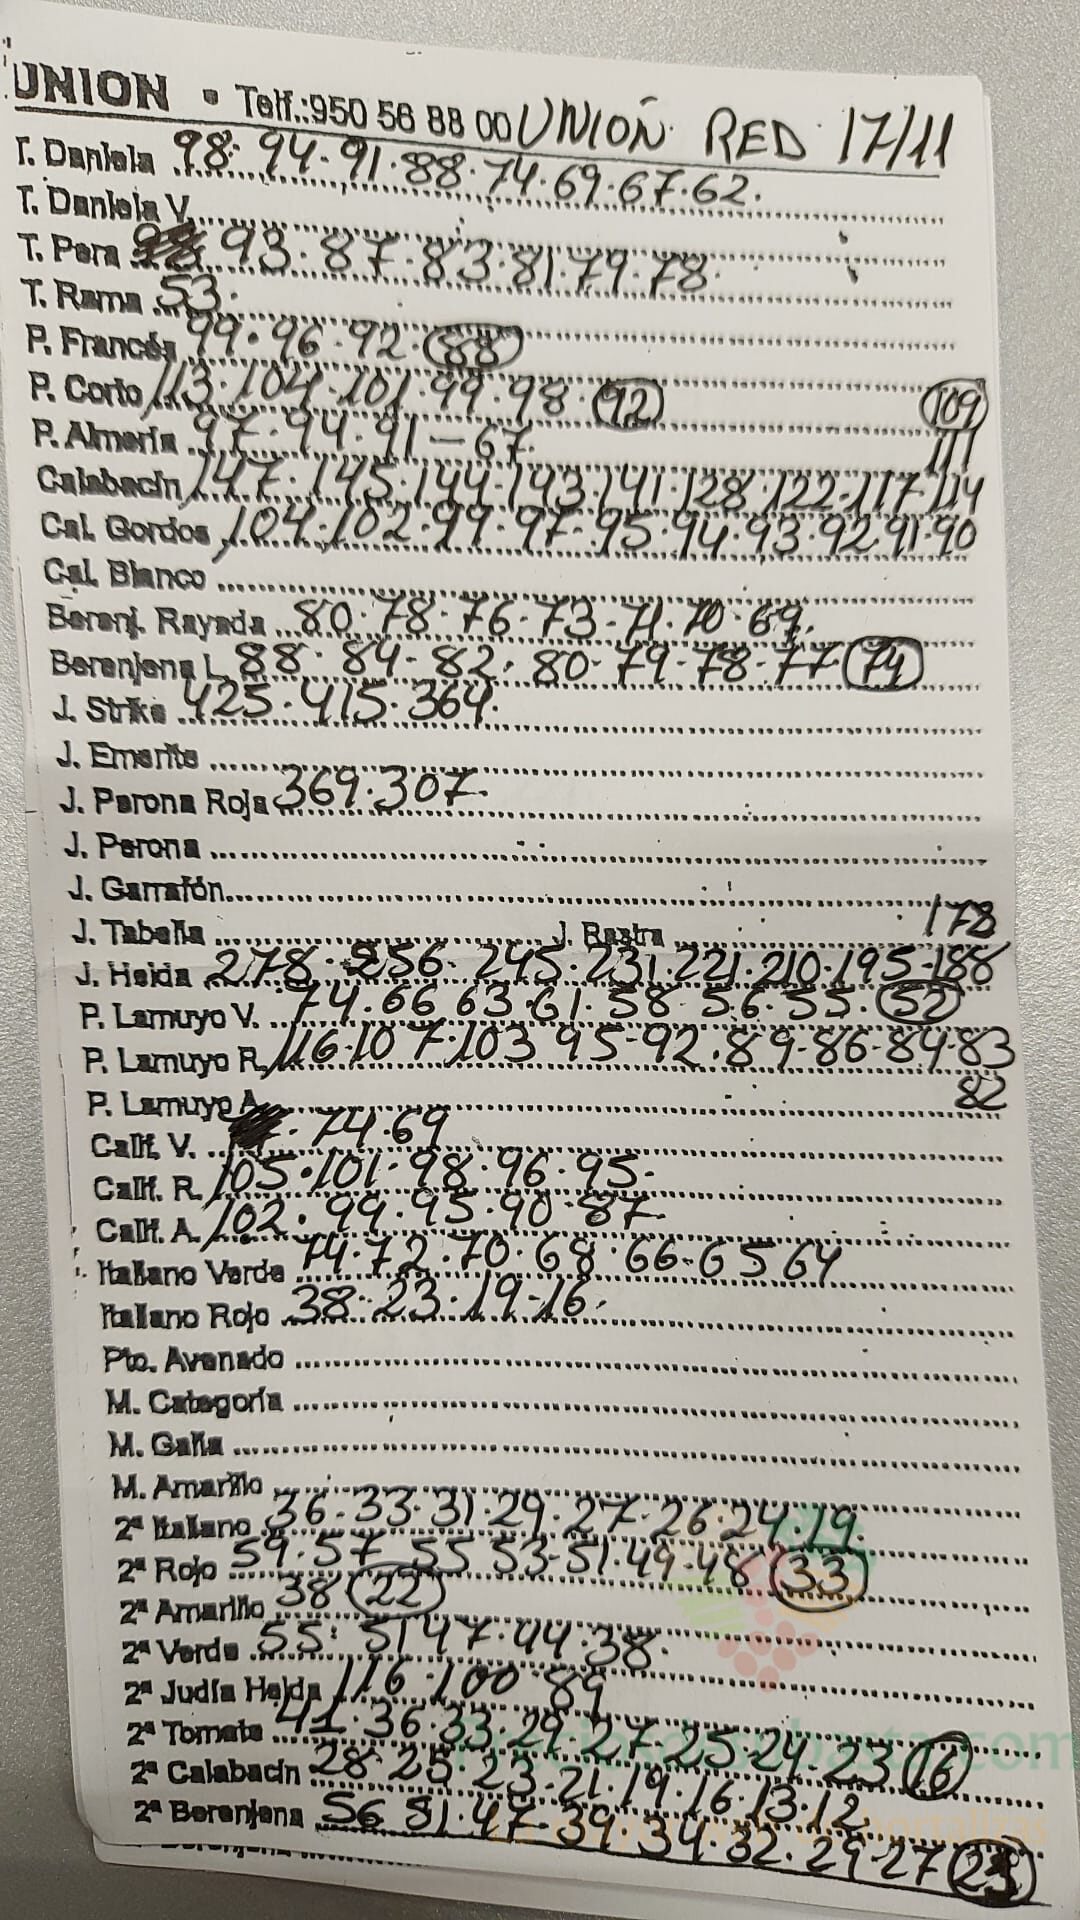 UNION • Telf.:950 56 88 00 UNIÓN. RED. 17/11
T. Daniela 98. 94. 91. 88. 74. 69. 67. 62.
T. Daniela V.
T. Pera 93. 87. 83. 81. 79. 78.
T. Rama 53.
P. Francés 99. 96. 92. 88
P. Corto 113. 104. 101. 99. 98. 92 109
P. Almería 97. 94. 91 - 67. 111
Calabacín 147. 145. 144. 143. 141. 128. 122. 117. 114
Cal. Gordos 104. 102. 99. 97. 95. 94. 93. 92. 91. 90
Cal. Blanco
Berenj. Rayada 80. 78. 76. 73. 71. 70. 69.
Berenjena L. 88. 84. 82. 80. 79. 78. 77 74
J. Strike 425. 415. 364.
J. Emerite
J. Perona Roja 369. 307.
J. Perona
J. Garrafón
J. Tabella J. Rastra 178
J. Helda 278. 256. 245. 231. 221. 210. 195. 188
P. Lamuyo V. 74. 66 63. 61. 58. 56. 55. 52
P. Lamuyo R. 116. 107. 103 95. 92. 89. 86. 84. 83
P. Lamuyo A. 82
Calif. V. 74. 69
Calif. R. 105. 101. 98. 96. 95.
Calif. A. 102. 99. 95. 90. 87.
Italiano Verde 74. 72. 70. 68. 66. 65 64
Italiano Rojo 38. 23. 19. 16.
Pto. Avenado
M. Categoría
M. Galia
M. Amarillo
2ª Italiano 36. 33. 31. 29. 27. 26. 24. 19.
2ª Rojo 59. 57 55 53. 51. 49. 48 33
2ª Amarillo 38 22
2ª Verde 55. 51 47. 44. 38.
2ª Judía Helda 116. 100. 89
2ª Tomate 41. 36. 33. 29. 27. 25. 24. 23 16
2ª Calabacín 28. 25. 23. 21. 19. 16. 13. 12
2ª Berenjena 56 51. 47. 39. 34. 32. 29. 27